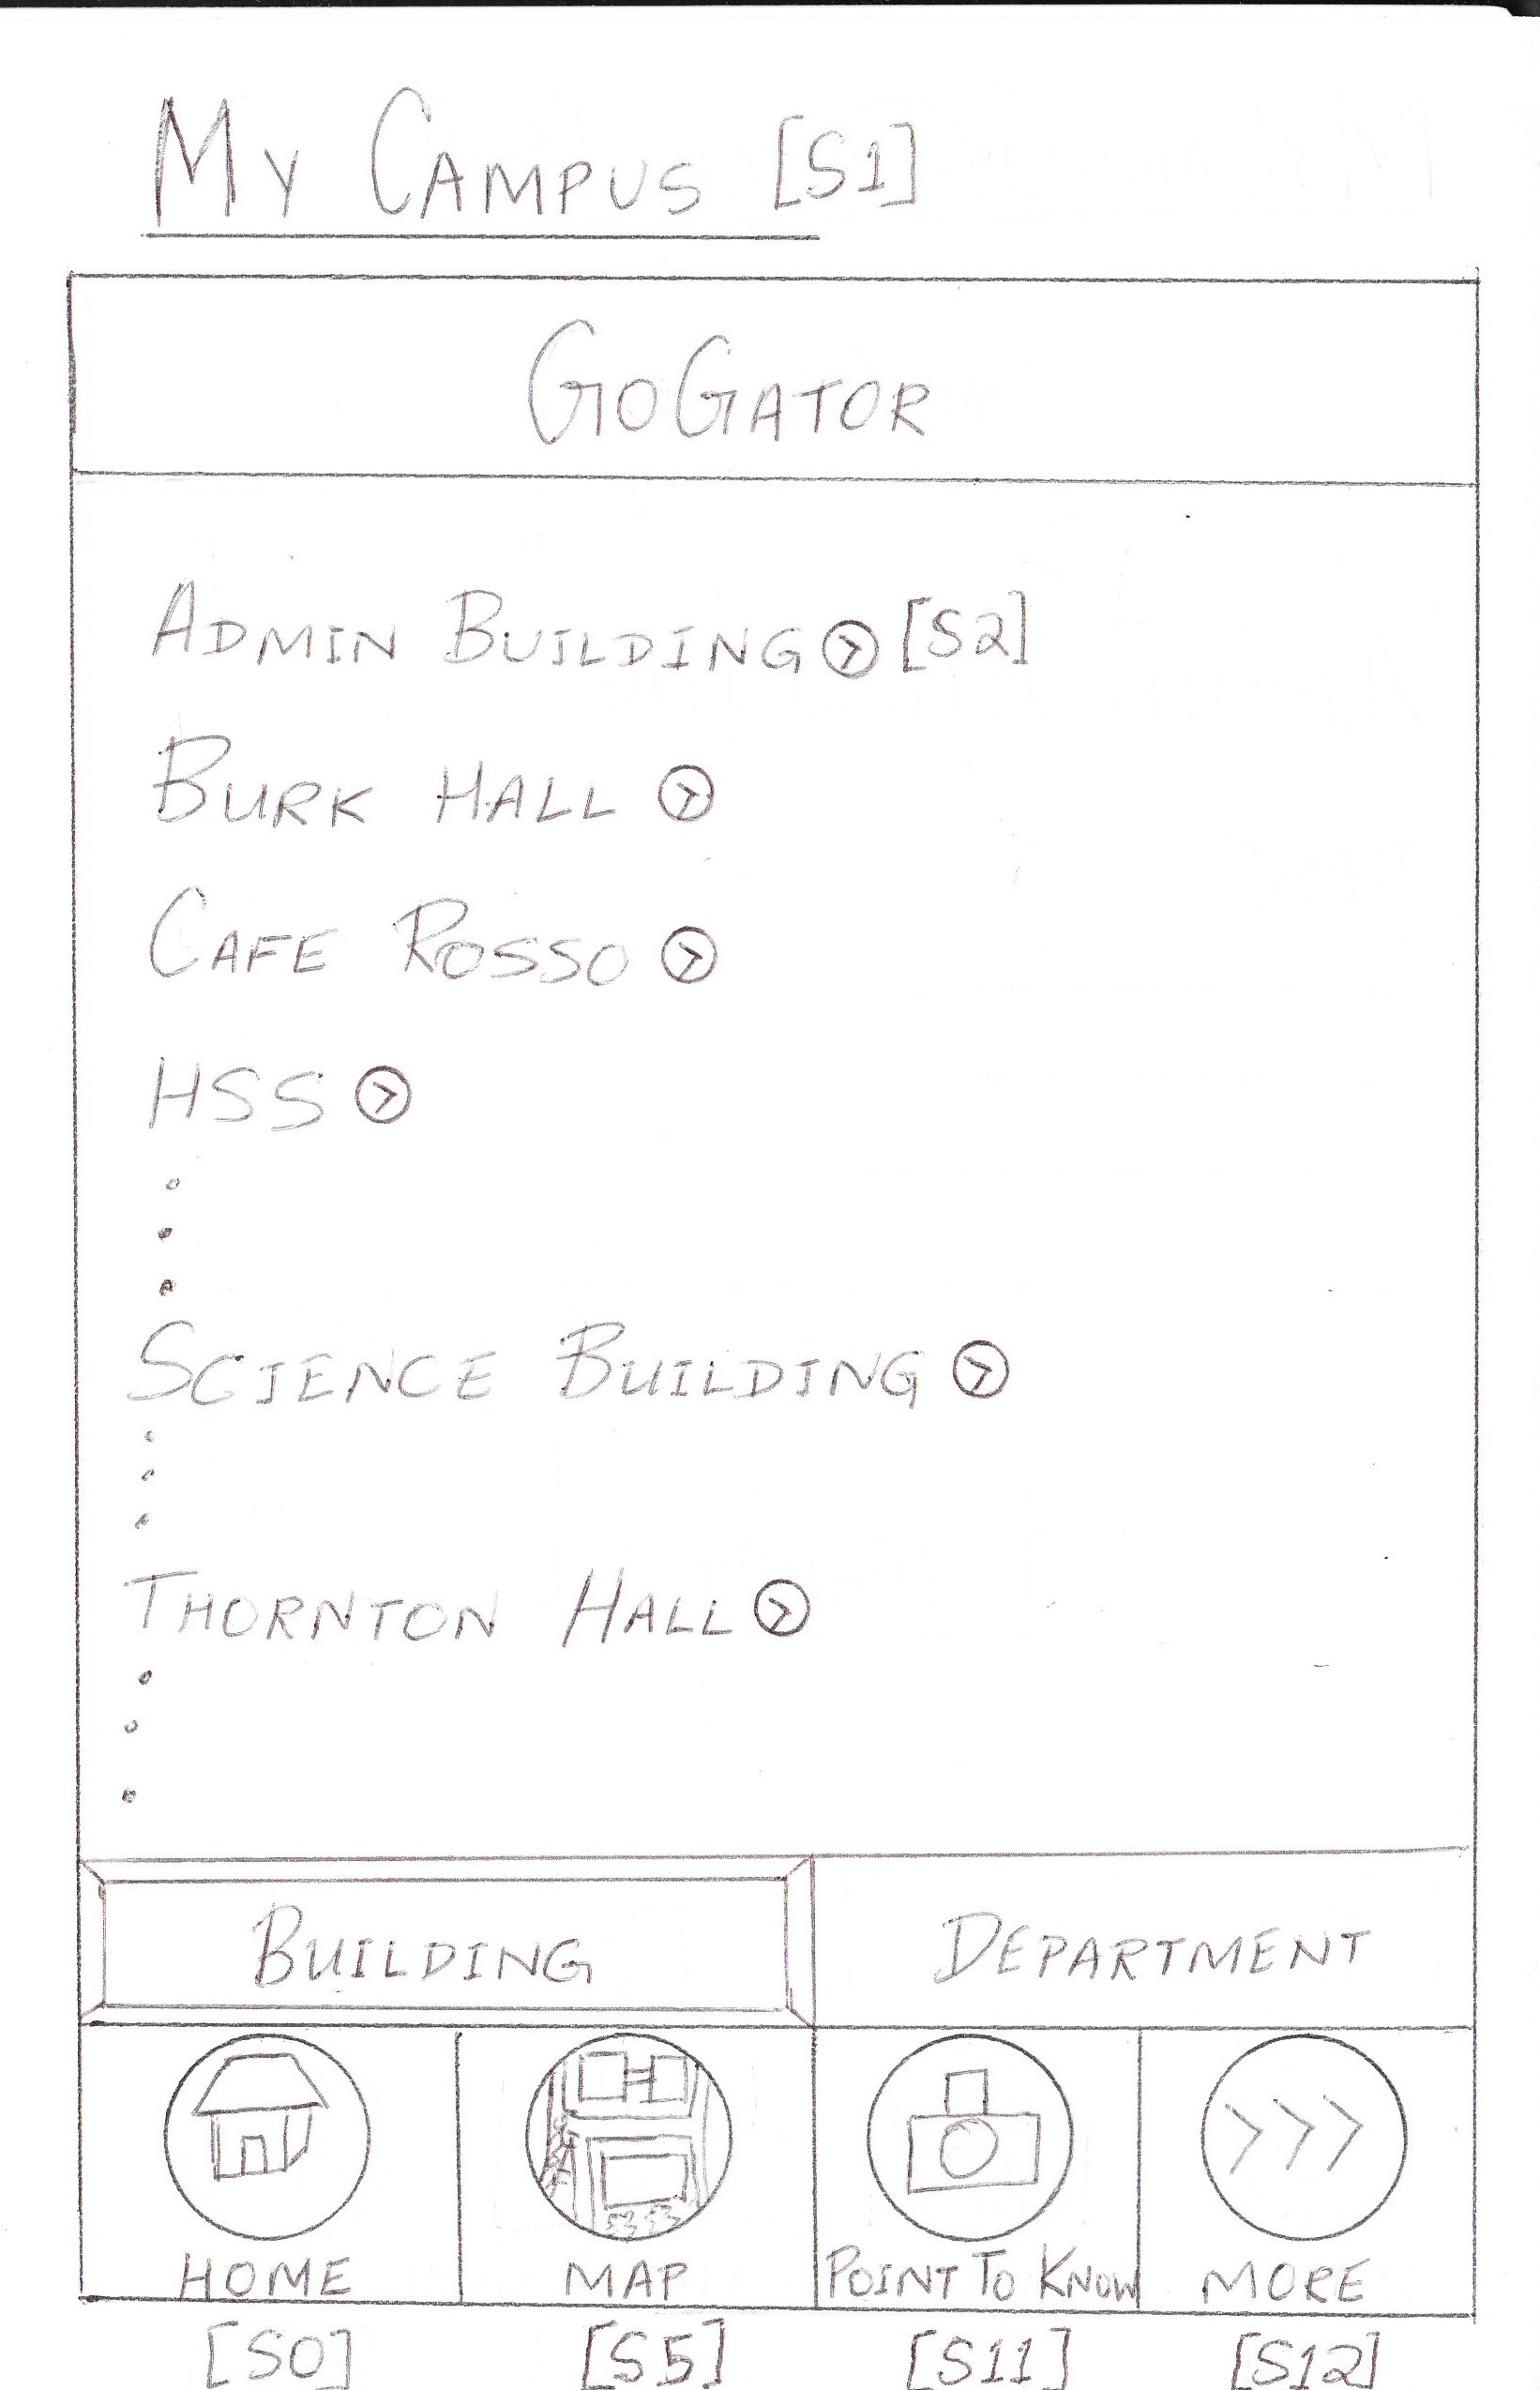 My Campus [S1]
GoGator
Admin Building > [S2]
Burk Hall >
Cafe Rosso >
HSS >
Science Building >
Thornton Hall >
Building Department
Home Map Point To Know More
[S0] [S5] [S11] [S12]